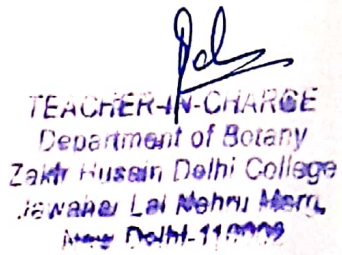 TEACHER-IN-CHARGE
Department of Botany
Zakir Husain Delhi College
Jawahar Lal Nehru Marg,
New Delhi-110002